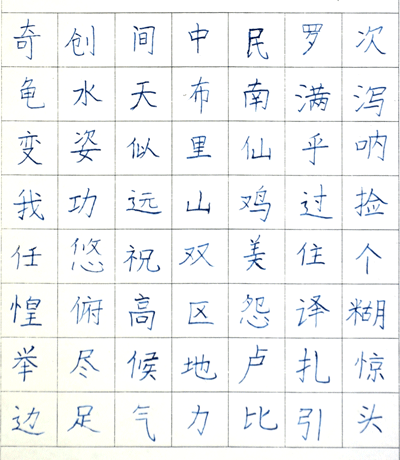 奇创间中民罗次
龟水天布南满泻
变姿似里仙乎呐
我功远山鸡过捡
任悠祝双美住个
惶俯高区怨译糊
举尽候地卢扎惊
边足气力比引头